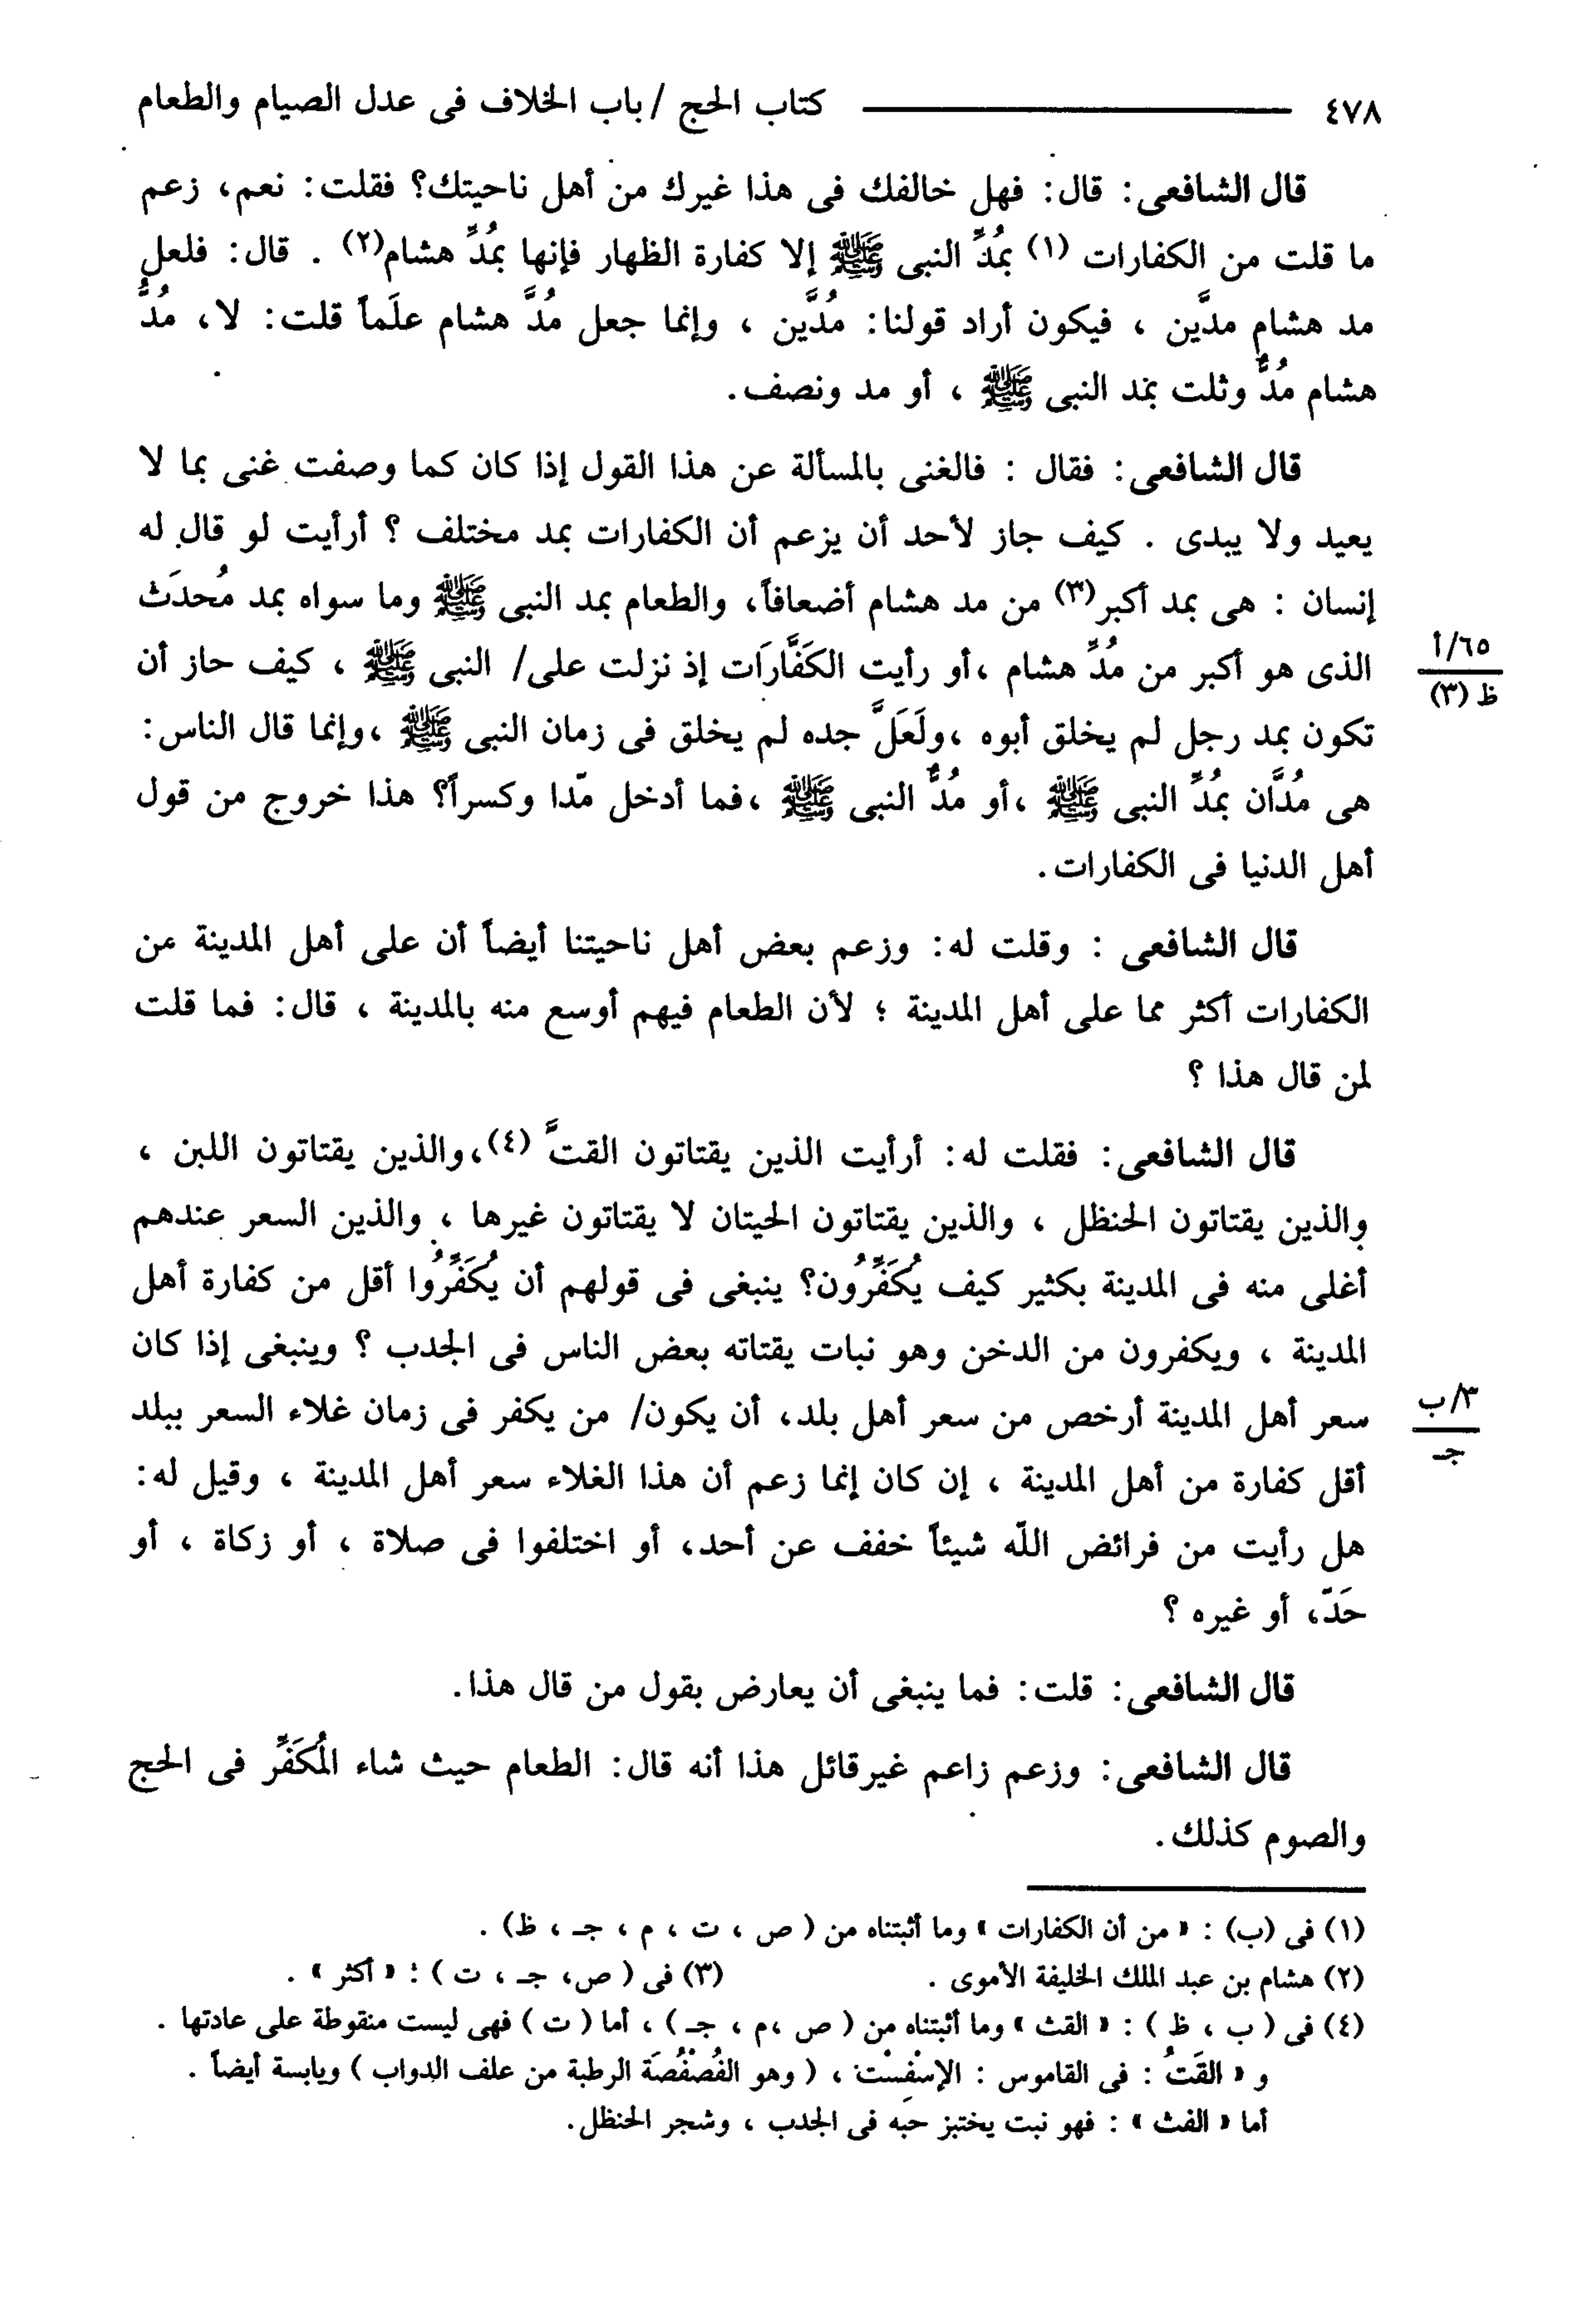 ٤٧٨ كتاب الحج / باب الخلاف فى عدل الصيام والطعام
قال الشافعى: قال: فهل خالفك فى هذا غيرك من أهل ناحيتك؟ فقلت: نعم، زعم
ما قلت من الكفارات (١) بمُدِّ النبى ﷺ إلا كفارة الظهار فإنها بمُدِّ هشام(٢) . قال: فلعل
مد هشام مدَّين ، فيكون أراد قولنا: مُدَّين ، وإنما جعل مُدَّ هشام علَماً قلت: لا، مُدُّ
هشام مُدٌّ وثلث بمد النبى ﷺ ، أو مد ونصف.
قال الشافعى: فقال : فالغنى بالمسألة عن هذا القول إذا كان كما وصفت غنى بما لا
يعيد ولا يبدى . كيف جاز لأحد أن يزعم أن الكفارات بمد مختلف ؟ أرأيت لو قال له
إنسان : هى بمد أكبر(٣) من مد هشام أضعافاً، والطعام بمد النبى ﷺ وما سواه بمد مُحدَث
الذى هو أكبر من مُدِّ هشام ،أو رأيت الكَفَّارَات إذ نزلت على/ النبى ﷺ ، كيف حاز أن
٦٥/أ
ظ (٣)
تكون بمد رجل لم يخلق أبوه ،ولَعَلَّ جده لم يخلق فى زمان النبى ﷺ ،وإنما قال الناس:
هى مُدَّان بمُدِّ النبى ﷺ ،أو مُدٌّ النبى ﷺ ،فما أدخل مّدا وكسراً؟ هذا خروج من قول
أهل الدنيا فى الكفارات.
قال الشافعى : وقلت له: وزعم بعض أهل ناحيتنا أيضاً أن على أهل المدينة من
الكفارات أكثر مما على أهل المدينة ؛ لأن الطعام فيهم أوسع منه بالمدينة ، قال: فما قلت
لمن قال هذا ؟
قال الشافعى: فقلت له: أرأيت الذين يقتاتون القتَّ (٤)،والذين يقتاتون اللبن ،
والذين يقتاتون الحنظل ، والذين يقتاتون الحيتان لا يقتاتون غيرها ، والذين السعر عندهم
أغلى منه فى المدينة بكثير كيف يُكَفِّرُون؟ ينبغى فى قولهم أن يُكَفِّرُوا أقل من كفارة أهل
المدينة ، ويكفرون من الدخن وهو نبات يقتاته بعض الناس فى الجدب ؟ وينبغى إذا كان
سعر أهل المدينة أرخص من سعر أهل بلد، أن يكون/ من يكفر فى زمان غلاء السعر ببلد
٣/ب
جـ
أقل كفارة من أهل المدينة ، إن كان إنما زعم أن هذا الغلاء سعر أهل المدينة ، وقيل له:
هل رأيت من فرائض اللّه شيئاً خفف عن أحد، أو اختلفوا فى صلاة ، أو زكاة ، أو
حَدّ، أو غيره ؟
قال الشافعى: قلت: فما ينبغى أن يعارض بقول من قال هذا.
قال الشافعى: وزعم زاعم غيرقائل هذا أنه قال: الطعام حيث شاء المُكَفِّر فى الحج
والصوم كذلك.
(١) فى (ب) : « من أن الكفارات » وما أثبتناه من ( ص ، ت ، م ، جـ ، ظ) .
(٢) هشام بن عبد الملك الخليفة الأموى . (٣) فى ( ص، جـ ، ت ) : « أكثر » .
(٤) فى ( ب ، ظ ) : « القث » وما أثبتناه من ( ص ،م ، جـ ) ، أما ( ت ) فهى ليست منقوطة على عادتها .
و « القَتُ : فى القاموس : الإسْفِسْت ، ( وهو الفُصْفُصَة الرطبة من علف الدواب ) ويابسة أيضاً .
أما « الفث » : فهو نبت يختبز حبه فى الجدب ، وشجر الحنظل.